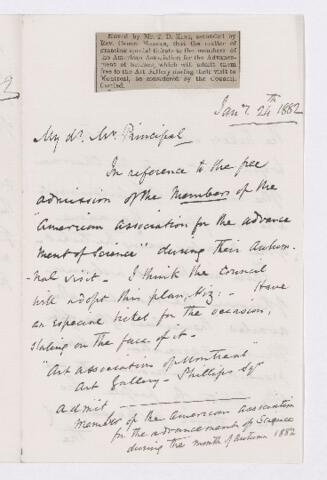 Moved by Mr. S. D. King, seconded by
Rev. Canon Norman, that the matter of
granting special tickets to the members of
the American Association for the Advance-
ment of Science, which will admit them
free to the Art Gallery during their visit to
Montreal, be considered by the Council.
Carried.
Jany. 24th 1882
My dr. Mr Principal
In reference to the free
admission of the members of the
"American Association for the advance
ment of Science" during their Autum-
-nal visit - I think the Council
will adopt this plan, viz: - Have
an especial ticket for the occasion,
stating on the face of it -
"Art Association of Montreal"
Art Gallery - Phillips Sqr
admit
Member of the American Association
for the advancement of Science
during the month of Autumn 1882